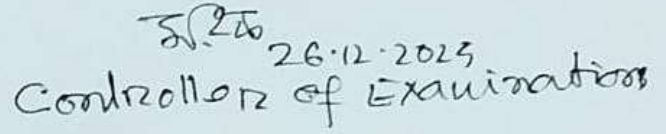 26.12.2025
Controller of Examinations